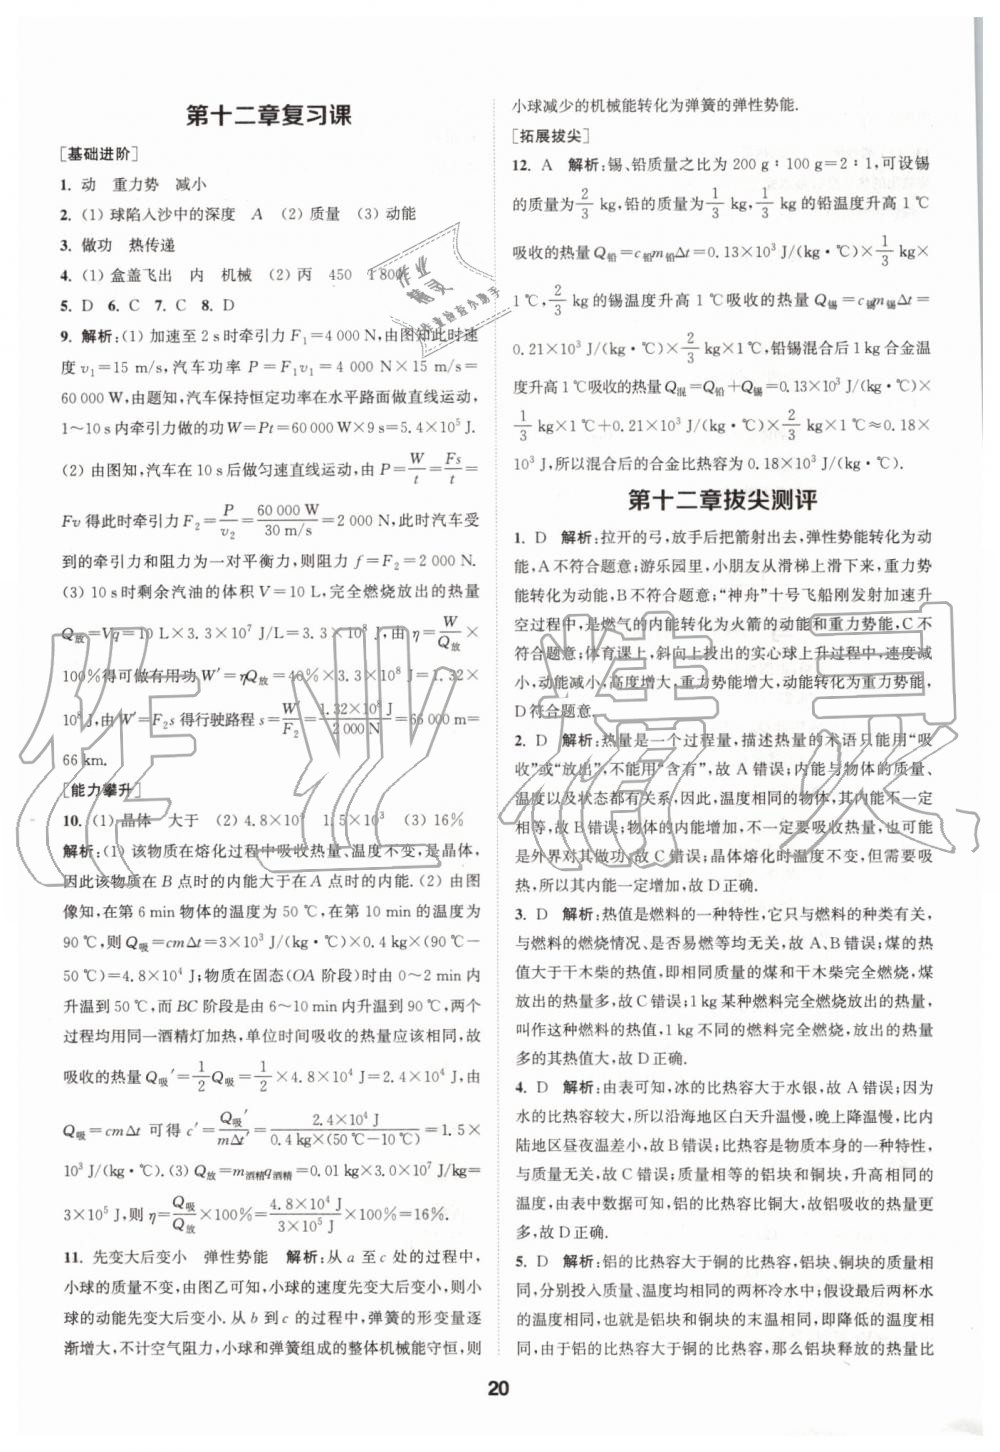 第十二章复习课
[基础进阶]
1. 动 重力势 减小
2. (1) 球陷入沙中的深度 A (2) 质量 (3) 动能
3. 做功 热传递
4. (1) 盒盖飞出 内 机械 (2) 丙 450 1 800
5. D 6. C 7. C 8. D
9. 解析:(1) 加速至 2 s 时牵引力 F₁=4 000 N,由图知此时速
度 v₁=15 m/s,汽车功率 P=F₁v₁=4 000 N×15 m/s=
60 000 W,由题知,汽车保持恒定功率在水平路面做直线运动,
1～10 s 内牵引力做的功 W=Pt=60 000 W×9 s=5.4×10⁵ J.
(2) 由图知,汽车在 10 s 后做匀速直线运动,由 P=W/t=Fs/t=
Fv 得此时牵引力 F₂=P/v₂=60 000 W/30 m/s=2 000 N,此时汽车受
到的牵引力和阻力为一对平衡力,则阻力 f=F₂=2 000 N.
(3) 10 s 时剩余汽油的体积 V=10 L,完全燃烧放出的热量
Q放=Vq=10 L×3.3×10⁷ J/L=3.3×10⁸ J,由 η=W/Q放×
100%得可做有用功 W′=ηQ放=40%×3.3×10⁸ J=1.32×
10⁸ J,由 W′=F₂s 得行驶路程 s=W′/F₂=1.32×10⁸ J/2 000 N=66 000 m=
66 km.
[能力攀升]
10. (1) 晶体 大于 (2) 4.8×10⁴ 1.5×10³ (3) 16%
解析:(1) 该物质在熔化过程中吸收热量、温度不变,是晶体,
因此该物质在 B 点时的内能大于在 A 点时的内能. (2) 由图
像知,在第 6 min 物体的温度为 50 ℃,在第 10 min 的温度为
90 ℃,则 Q吸=cmΔt=3×10³ J/(kg·℃)×0.4 kg×(90 ℃－
50 ℃)=4.8×10⁴ J;物质在固态(OA 阶段)时由 0～2 min 内
升温到 50 ℃,而 BC 阶段是由 6～10 min 内升温到 90 ℃,两个
过程均用同一酒精灯加热,单位时间吸收的热量应该相同,故
吸收的热量 Q吸′=1/2Q吸=1/2×4.8×10⁴ J=2.4×10⁴ J,由
Q吸=cmΔt 可得 c′=Q吸′/mΔt′=2.4×10⁴ J/0.4 kg×(50 ℃－10 ℃)=1.5×
10³ J/(kg·℃). (3) Q放=m酒精q酒精=0.01 kg×3.0×10⁷ J/kg=
3×10⁵ J,则 η=Q吸/Q放×100%=4.8×10⁴ J/3×10⁵ J×100%=16%.
11. 先变大后变小 弹性势能 解析:从 a 至 c 处的过程中,
小球的质量不变,由图乙可知,小球的速度先变大后变小,则小
球的动能先变大后变小. 从 b 到 c 的过程中,弹簧的形变量逐
渐增大,不计空气阻力,小球和弹簧组成的整体机械能守恒,则
小球减少的机械能转化为弹簧的弹性势能.
[拓展拔尖]
12. A 解析:锡、铅质量之比为 200 g∶100 g=2∶1,可设锡
的质量为2/3 kg,铅的质量为1/3 kg,1/3 kg 的铅温度升高 1 ℃
吸收的热量 Q铅=c铅m铅Δt=0.13×10³ J/(kg·℃)×1/3 kg×
1 ℃,2/3 kg 的锡温度升高 1 ℃吸收的热量 Q锡=c锡m锡Δt=
0.21×10³ J/(kg·℃)×2/3 kg×1 ℃,铅锡混合后 1 kg 合金温
度升高 1 ℃吸收的热量 Q混=Q铅+Q锡=0.13×10³ J/(kg·℃)×
1/3 kg×1 ℃+0.21×10³ J/(kg·℃)×2/3 kg×1 ℃≈0.18×
10³ J,所以混合后的合金比热容为 0.18×10³ J/(kg·℃).
第十二章拔尖测评
1. D 解析:拉开的弓,放手后把箭射出去,弹性势能转化为动
能,A 不符合题意;游乐园里,小朋友从滑梯上滑下,重力势
能转化为动能,B 不符合题意;“神舟”十号飞船刚发射加速升
空过程中,是燃气的内能转化为火箭的动能和重力势能,C 不
符合题意;体育课上,斜向上投出的实心球上升过程中,速度减
小,动能减小,高度增大,重力势能增大,动能转化为重力势能,
D 符合题意.
2. D 解析:热量是一个过程量,描述热量的术语只能用“吸
收”或“放出”,不能用“含有”,故 A 错误;内能与物体的质量、
温度以及状态都有关系,因此,温度相同的物体,其内能不一定
相等,故 B 错误;物体的内能增加,不一定要吸收热量,也可能
是外界对其做功,故 C 错误;晶体熔化时温度不变,但需要吸
热,所以其内能一定增加,故 D 正确.
3. D 解析:热值是燃料的一种特性,它只与燃料的种类有关,
与燃料的燃烧情况、是否易燃等均无关,故 A、B 错误;煤的热
值大于干木柴的热值,即相同质量的煤和干木柴完全燃烧,煤
放出的热量多,故 C 错误;1 kg 某种燃料完全燃烧放出的热量,
叫作这种燃料的热值,1 kg 不同的燃料完全燃烧,放出的热量
多的其热值大,故 D 正确.
4. D 解析:由表可知,冰的比热容大于水银,故 A 错误;因为
水的比热容较大,所以沿海地区白天升温慢,晚上降温慢,比内
陆地区昼夜温差小,故 B 错误;比热容是物质本身的一种特性,
与质量无关,故 C 错误;质量相等的铝块和铜块,升高相同的
温度,由表中数据可知,铝的比热容比铜大,故铝吸收的热量更
多,故 D 正确.
5. D 解析:铝的比热容大于铜的比热容,铝块、铜块的质量相
同,分别投入质量、温度均相同的两杯冷水中;假设最后两杯水
的温度相同,也就是铝块和铜块的末温相同,即降低的温度相
同,由于铝的比热容大于铜的比热容,那么铝块释放的热量比
20
作业精灵
作业
精灵